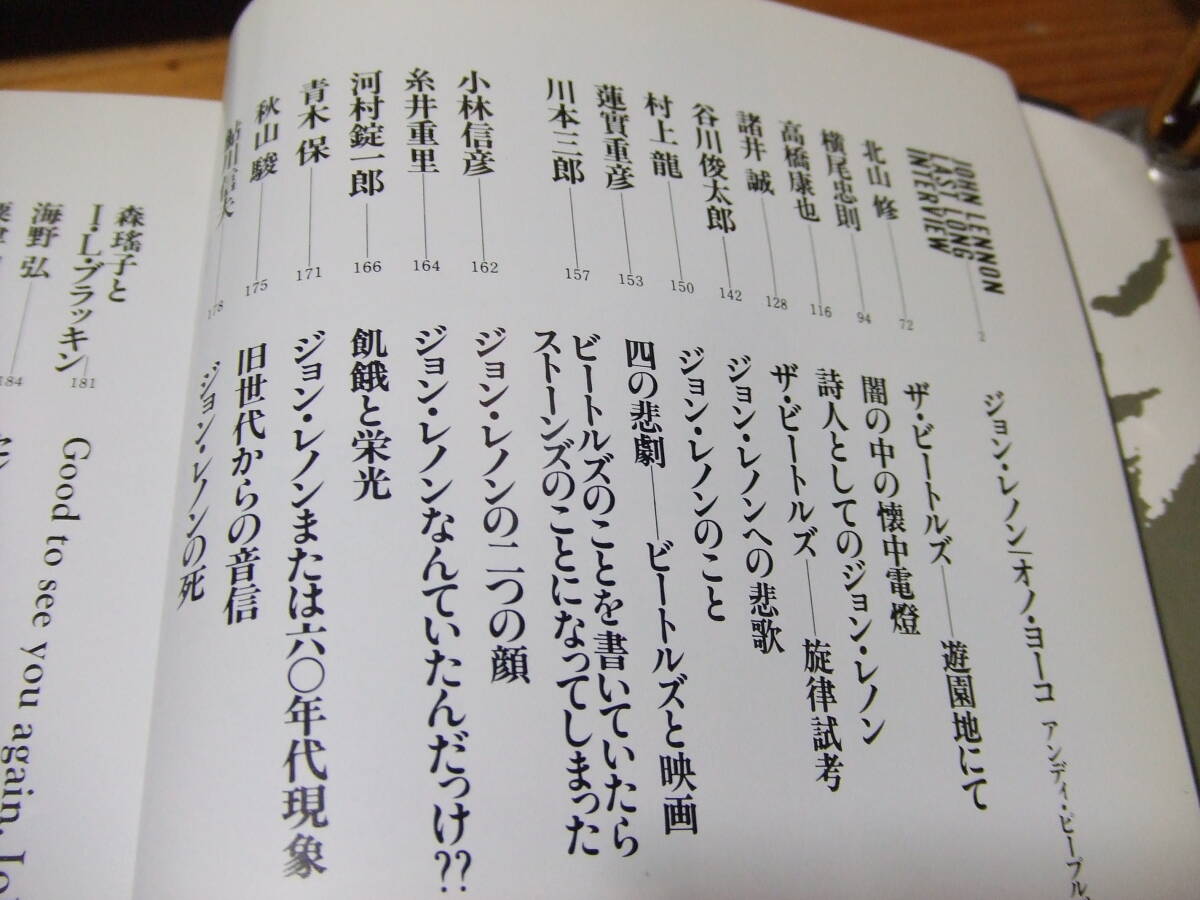 JOHN LENNON
LAST LONG
INTERVIEW
2
ジョン・レノン|オノ・ヨーコ アンディ・ピープル、
北山 修
72
ザ・ビートルズ——遊園地にて
横尾忠則
94
闇の中の懐中電燈
高橋康也
116
詩人としてのジョン・レノン
諸井 誠
128
ザ・ビートルズ——旋律試考
谷川俊太郎
142
ジョン・レノンへの悲歌
村上 龍
150
ジョン・レノンのこと
蓮實重彦
153
四の悲劇——ビートルズと映画
川本三郎
157
ビートルズのことを書いていたら
ストーンズのことになってしまった
小林信彦
162
ジョン・レノンの二つの顔
糸井重里
164
ジョン・レノンなんていたんだっけ??
河村錠一郎
166
飢餓と栄光
青木 保
171
ジョン・レノンまたは六〇年代現象
秋山 駿
175
旧世代からの音信
鮎川信夫
178
ジョン・レノンの死
森瑤子と
I・L・ブラッキン
181
Good to see you again,
海野 弘
184